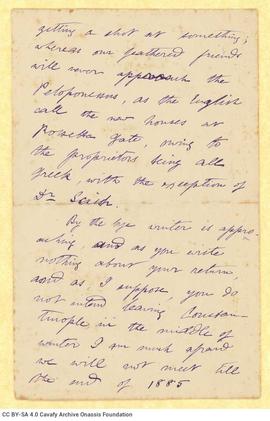 getting a shot at something;
whereas our feathered friends
will never approach the
Peloponessus, as the English
call the new houses at
Rosetta Gate, owing to
the proprietors being all
Greek with the exception of
Dr
By the bye winter is appro-
aching and as you write
nothing about your return
and as I suppose, you do
not intend leaving Constan-
tinople in the middle of
winter I am much afraid
we will not meet till
the end of 1885
CC BY-SA 4.0 Cavafy Archive Onassis Foundation